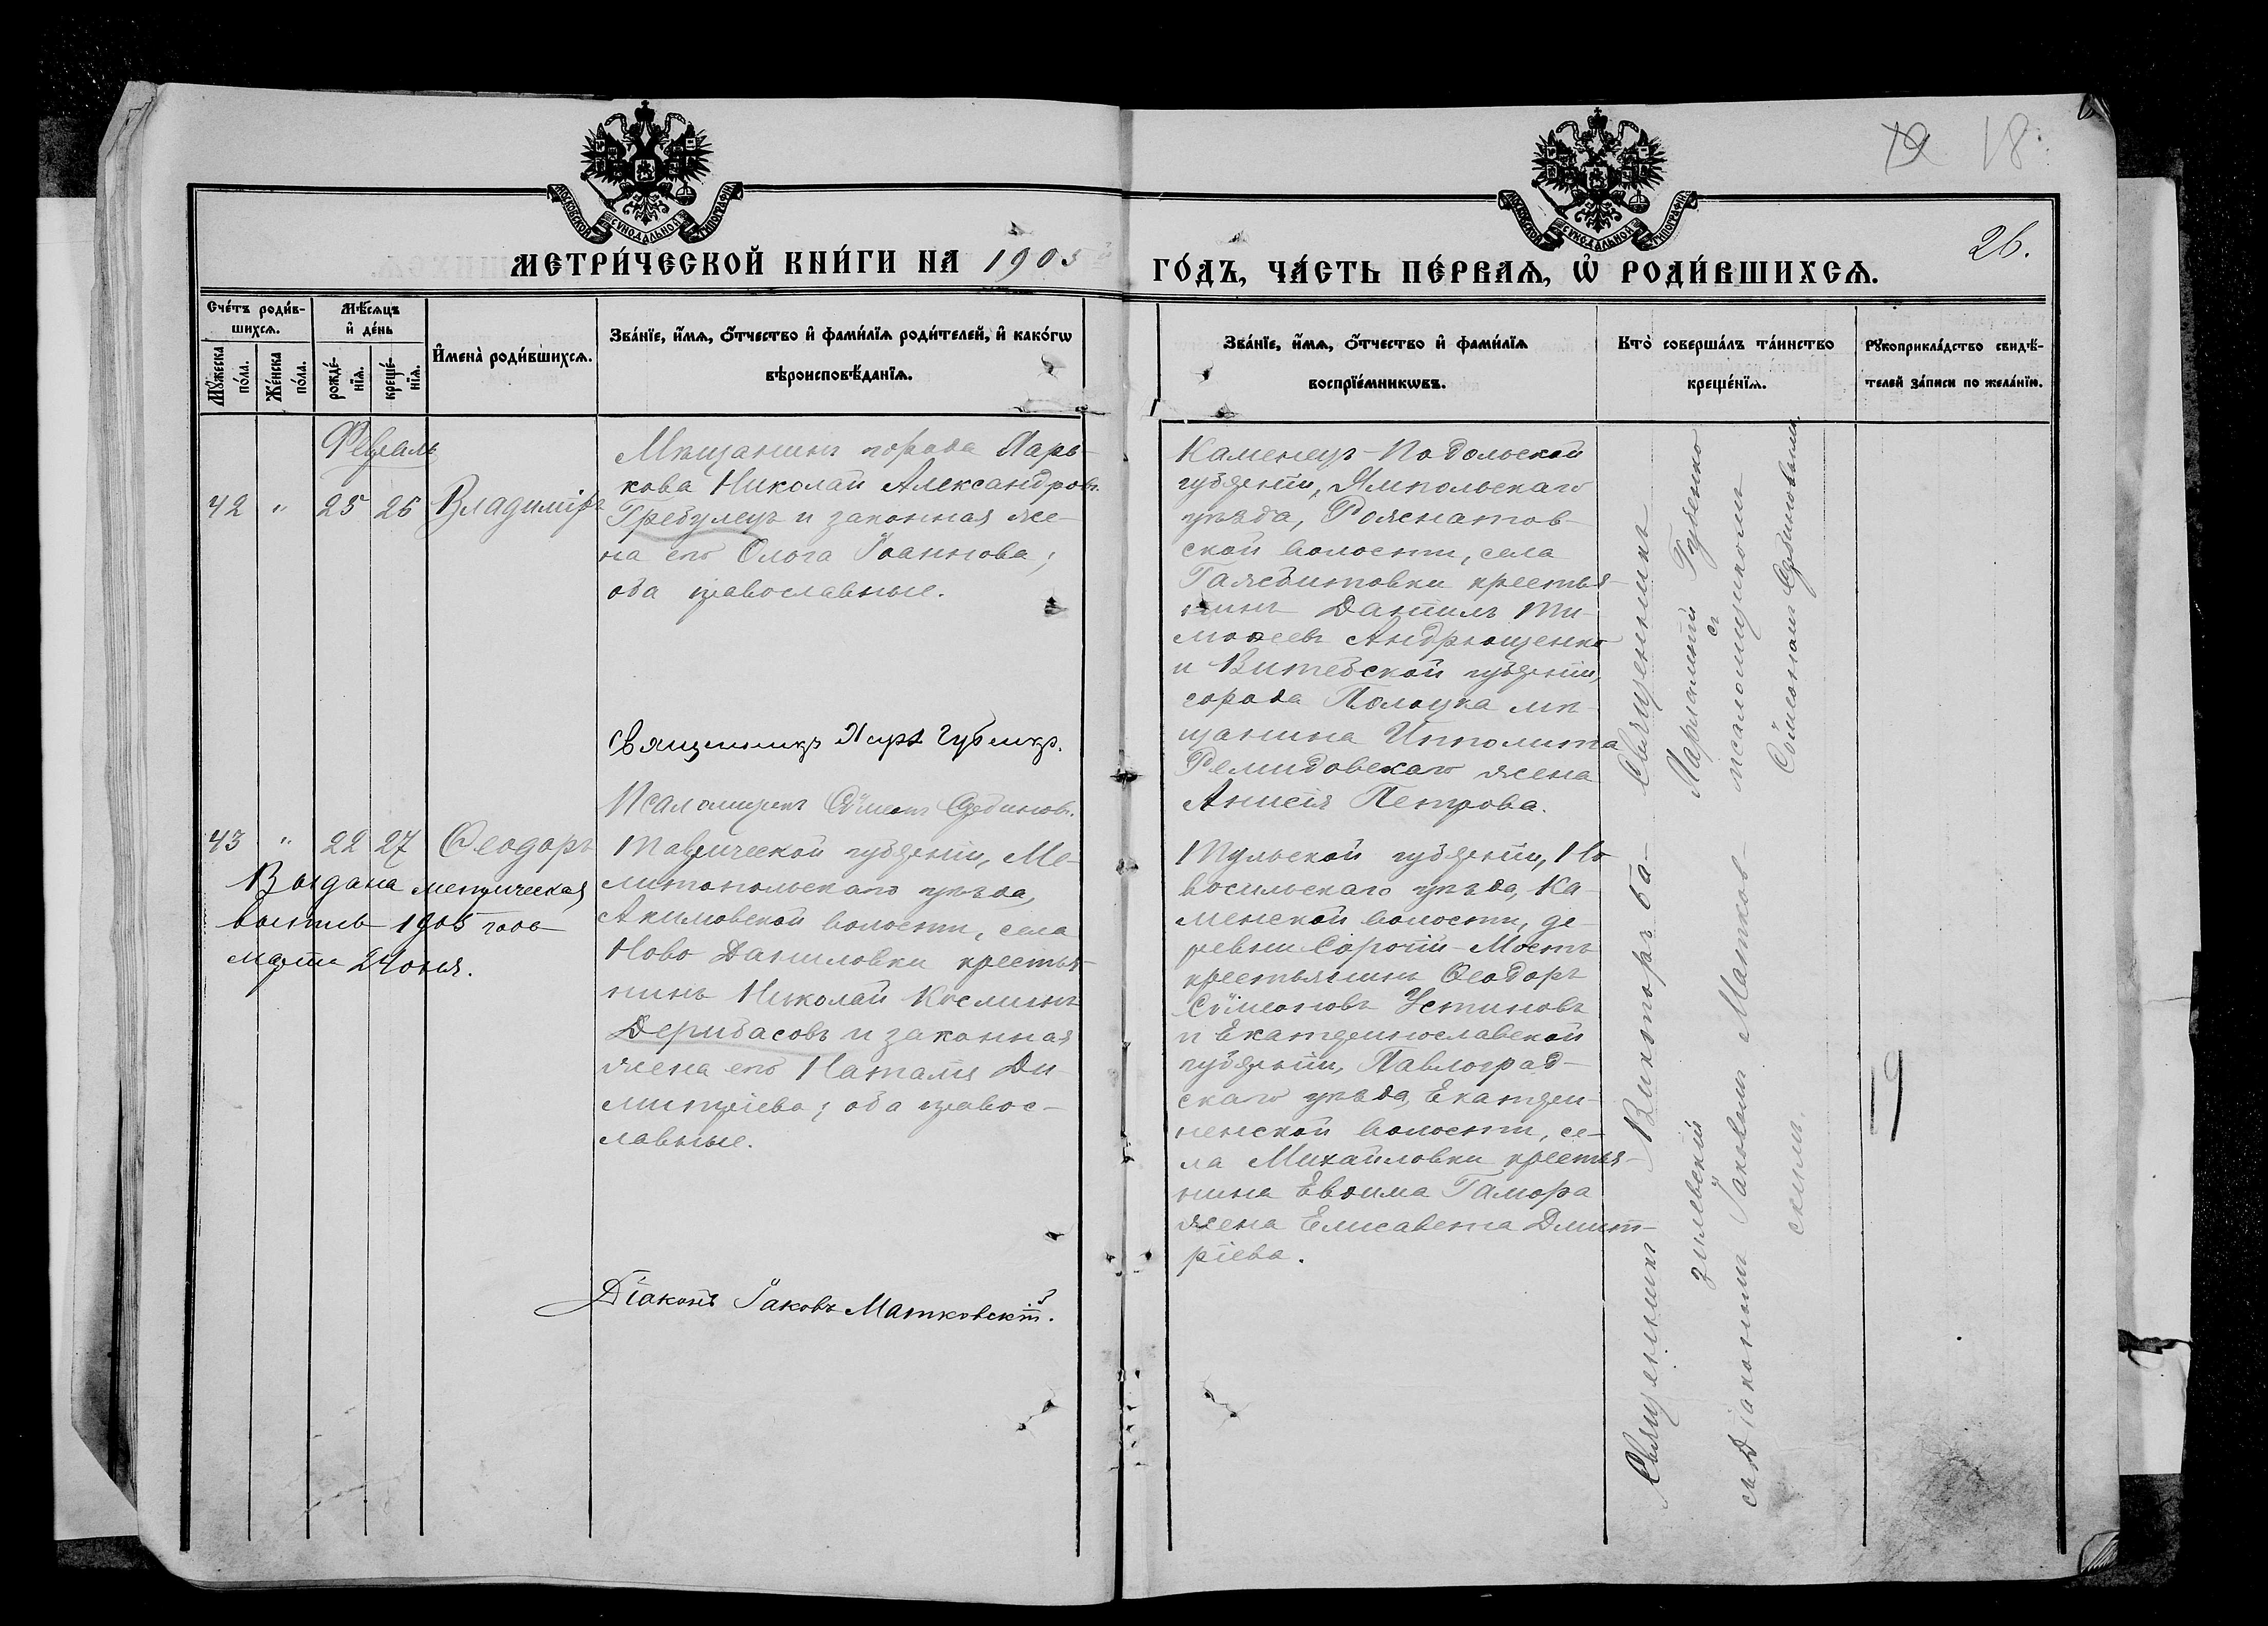 18
26.
МОСКОВСКОЙ СѴНОДАЛЬНОЙ ТИПОГРАФІИ
МОСКОВСКОЙ СѴНОДАЛЬНОЙ ТИПОГРАФІИ
МЕТРИ́ЧЕСКОЙ КНИ́ГИ НА 1905
ГО́ДЪ, ЧА́СТЬ ПЕ́РВАѦ, Ѡ҆ РОДИ́ВШИХСѦ.
Сче́тъ роди́в-
шихсѧ.
Мꙋ́жеска
по́ла.
Же́нска
по́ла.
Мѣ́сѧцъ
и҆ де́нь
рожде́-
нїѧ.
креще́-
нїѧ.
И҆мена̀ роди́вшихсѧ.
Зва́нїе, и҆́мѧ, ѻ҆́тчество и҆ фами́лїѧ роди́телей, и҆ како́гѡ
вѣроисповѣ́данїѧ.
Зва́нїе, и҆́мѧ, ѻ҆́тчество и҆ фами́лїѧ
воспрїе́мникѡвъ.
Кто̀ соверша́лъ та́инство
креще́нїѧ.
Рꙋкоприкла́дство свидѣ́-
телей за́писи по жела́нїю.
Февраль
42 " 25 26 Владиміръ
Мѣщанинъ города Харь-
кова Николай Александровъ
Гребулецъ и законная же-
на его Ольга Іоаннова;
оба православные.
Священникъ
Псаломщикъ Сѵмеонъ
Каменецъ-Подольской
губерніи, Ямпольскаго
уѣзда,
ской волости, села
крестья-
нинъ Даніилъ Ти-
моѳеевъ Андрющенко
и Витебской губерніи,
города Полоцка мѣ-
щанина Ипполита
жена
Анисія Петрова.
Священникъ
Харлампій Губенко
съ
псаломщикомъ
Сѵмеономъ
43 " 22 27 Ѳеодоръ
Выдана метрическая
1905 года
марта 24 дня.
Таврической губерніи, Ме-
литопольскаго уѣзда,
Акимовской волости, села
Ново Даниловки крестья-
нинъ Николай Косминъ
Дерибасовъ и законная
жена его Наталія Ди-
митріева; оба правос-
лавные.
Діаконъ Іаковъ Матковскій.
Тульской губерніи, Но-
восильскаго уѣзда, Ка-
менской волости, де-
ревни Сорочій-Мостъ
крестьянинъ Ѳеодоръ
Сѵмеоновъ Устиновъ
и Екатеринославской
губерніи, Павлоград-
скаго уѣзда,
волости, се-
ла Михайловки крестья-
нина Евѳима Гамора
жена Елисавета Дмит-
ріева.
Священникъ Викторъ Ба-
зилевскій
съ Діакономъ Іаковомъ Матков-
скимъ.